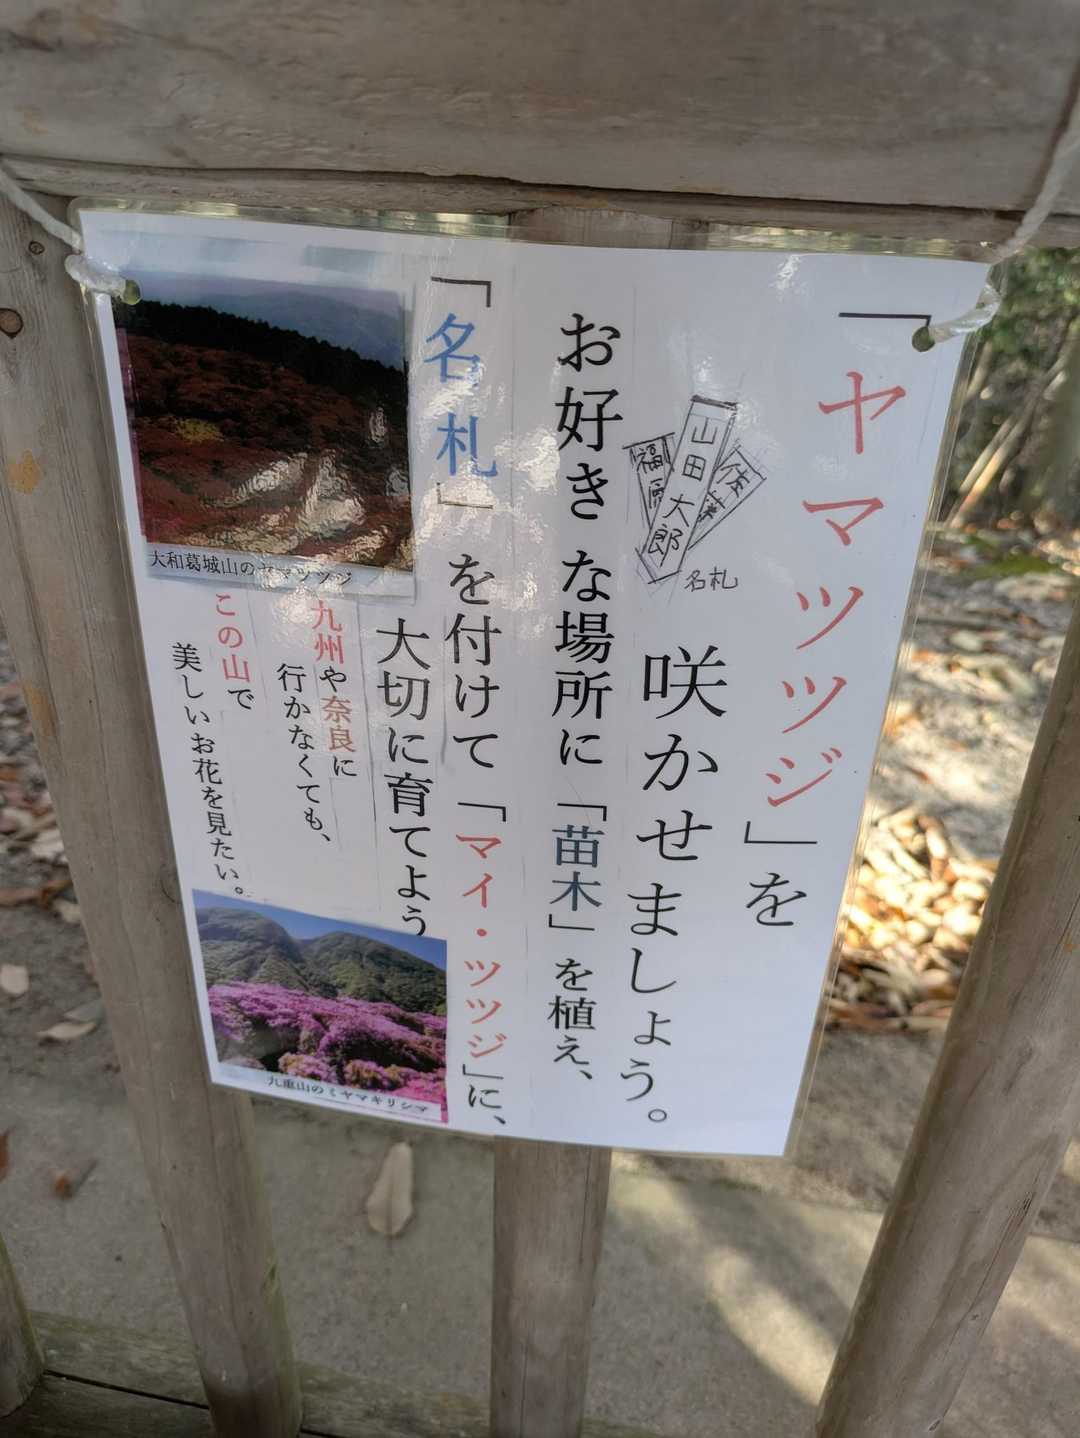 「ヤマツツジ」を
咲かせましょう。
山田太郎
福原
佐藤
名札
お好きな場所に「苗木」を植え、
「名札」を付けて「マイ・ツツジ」に、
大切に育てよう
九州や奈良に
行かなくても、
この山で
美しいお花を見たい。
大和葛城山のヤマツツジ
九重山のミヤマキリシマ